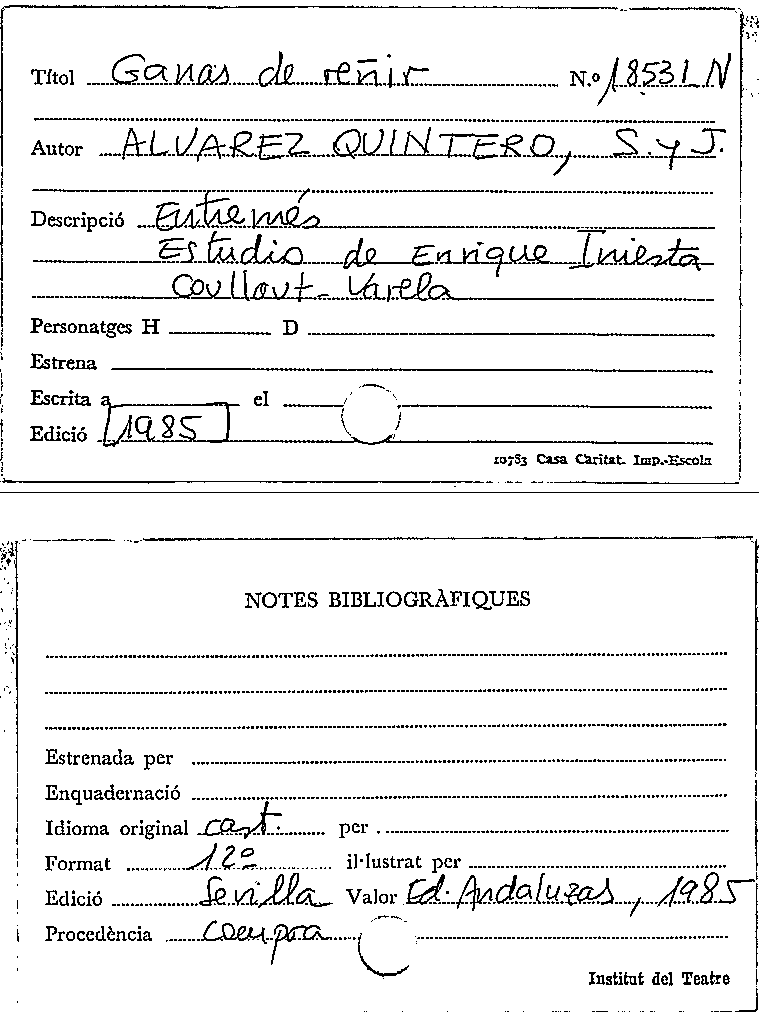 Títol Ganas de reñir N.º 18531 N
Autor ALVAREZ QUINTERO, S. y J.
Descripció Entremés
Estudio de Enrique Iniesta
Coullaut-Varela
Personatges H D
Estrena
Escrita a el
Edició 1985
10783 Casa Caritat. Imp.-Escola
NOTES BIBLIOGRÀFIQUES
Estrenada per
Enquadernació
Idioma original cast. per
Format 12º il·lustrat per
Edició Sevilla Valor Ed. Andaluzas, 1985
Procedència compra
Institut del Teatre